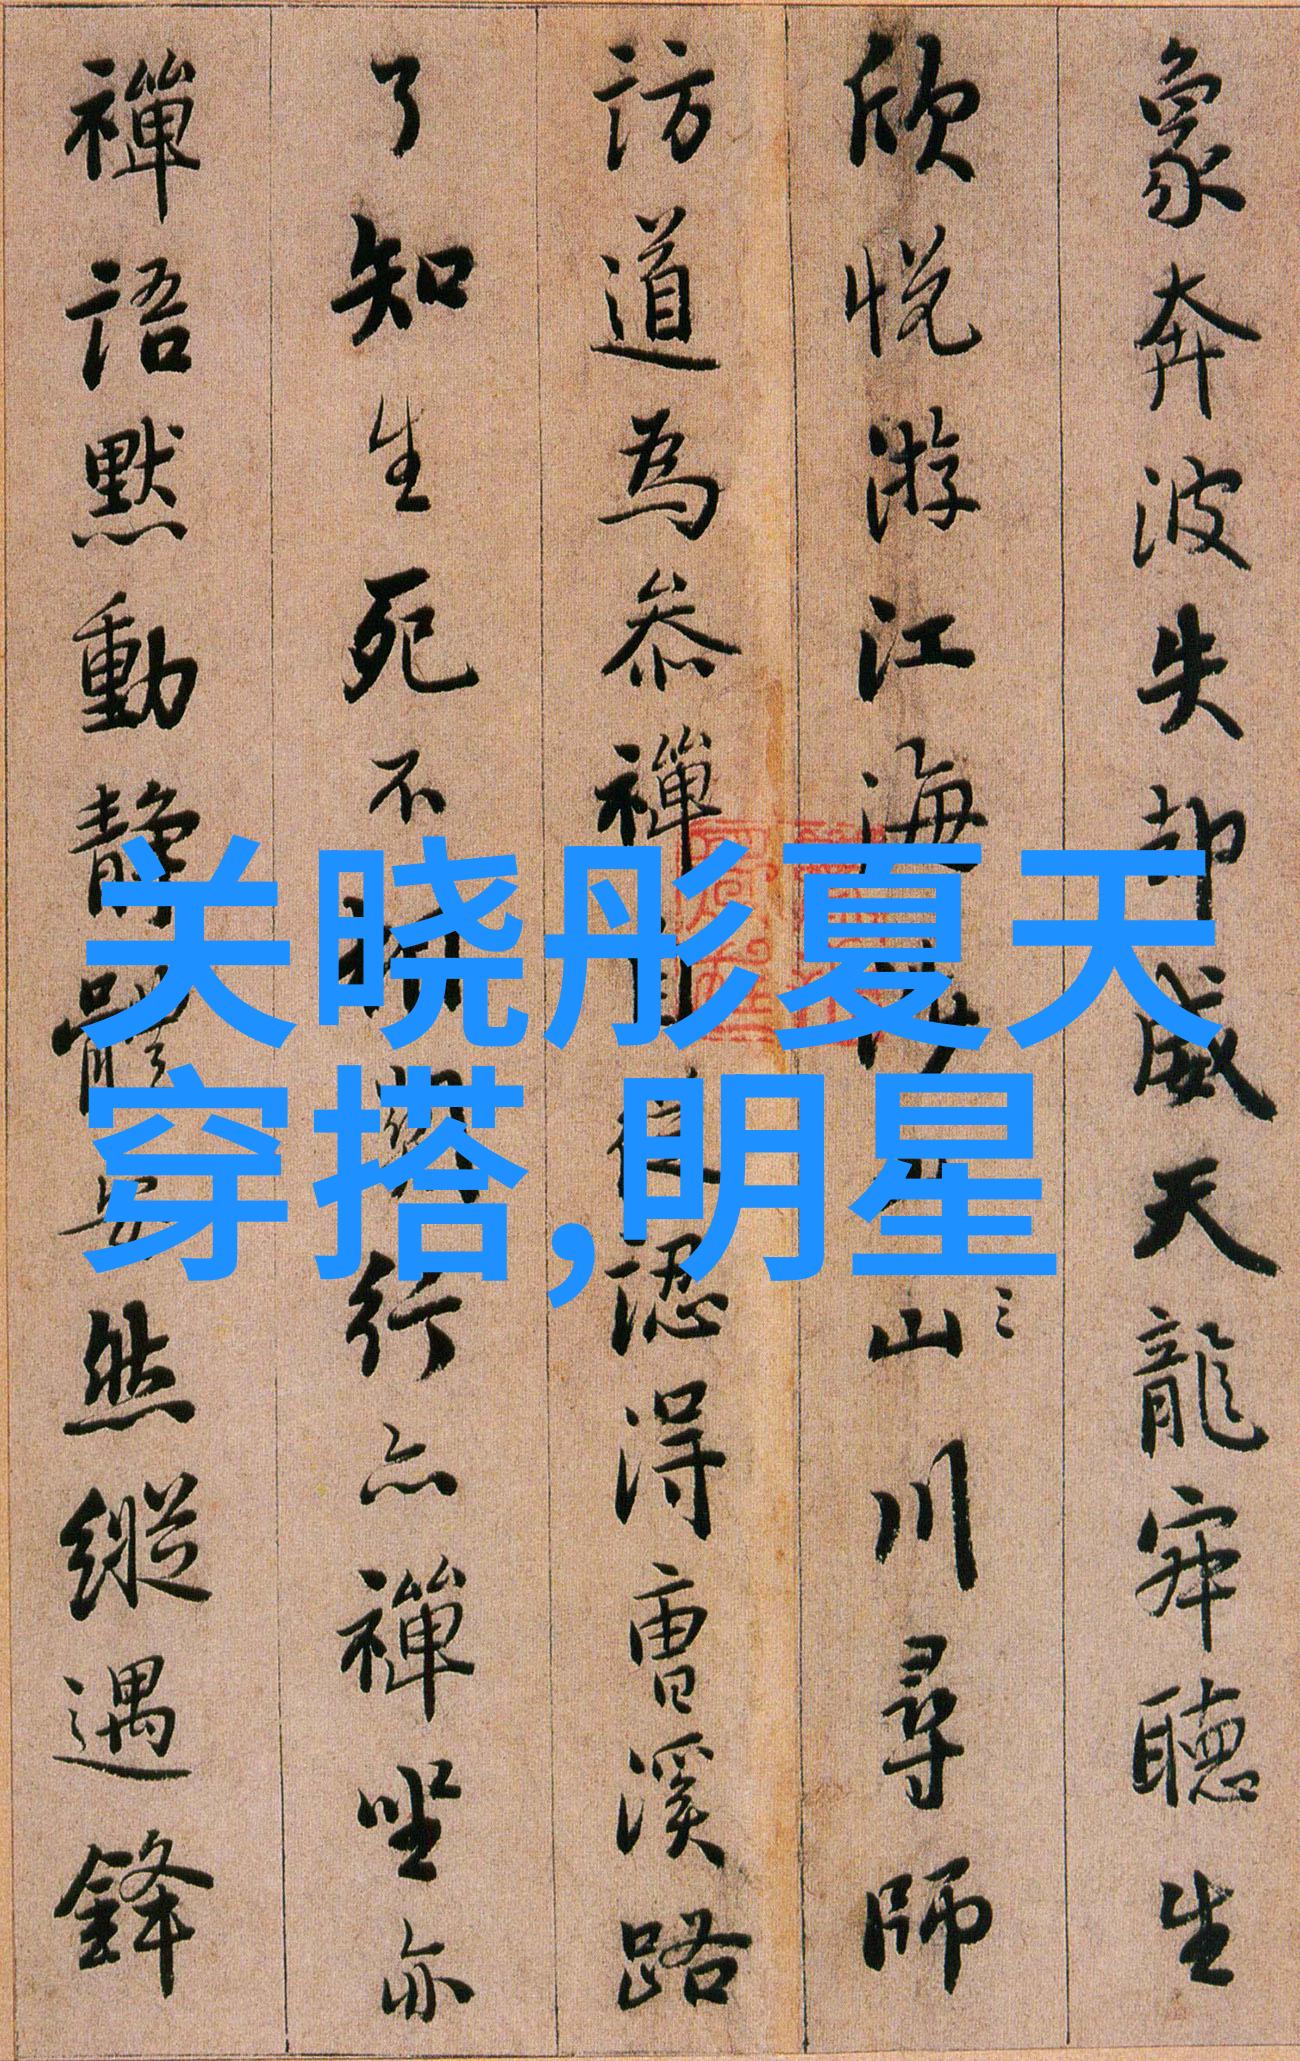 象奔波失却威天龍寂聽生
欣悅游江海涉山川尋師
訪道為叅禪自從認得曹溪路
了知生死不相關行亦禪坐亦
禪語默動靜體安然縱遇鋒
关晓彤夏天
穿搭,明星